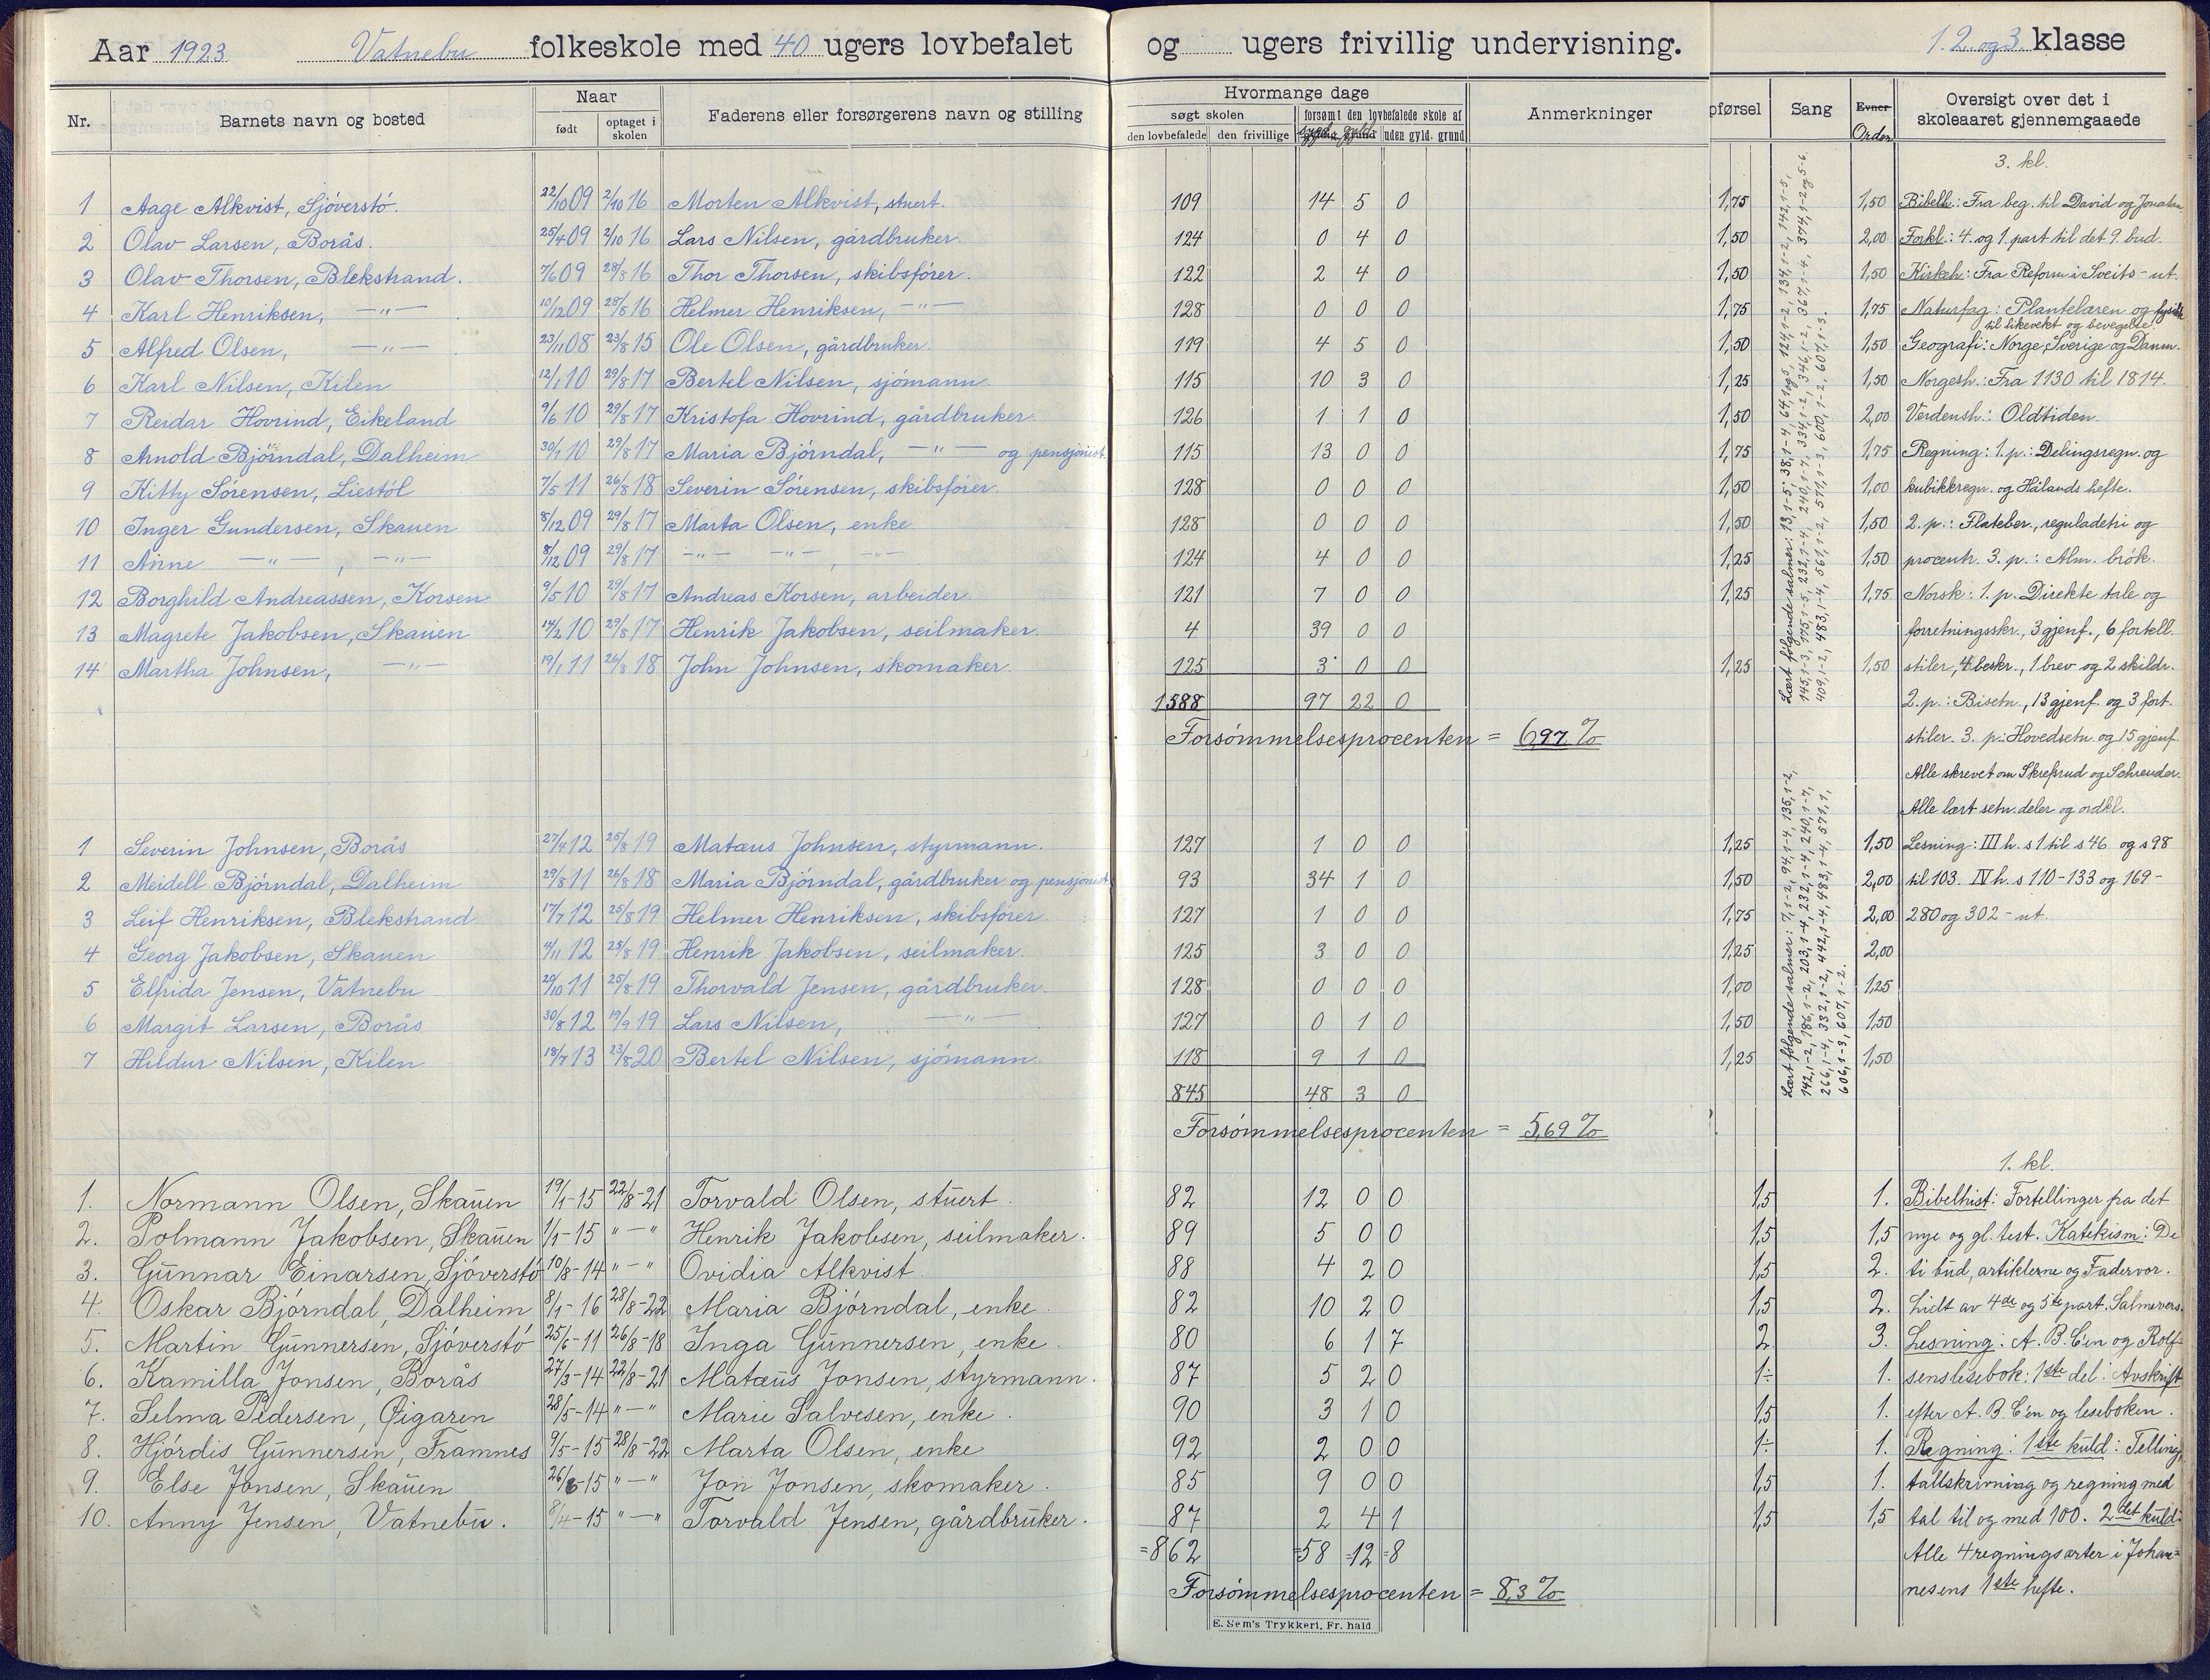 Aar 1923 Vatnebu folkeskole med 40 ugers lovbefalet og ugers frivillig undervisning. 1. 2. og 3 klasse
Nr. Barnets navn og bosted Naar født optaget i skolen Faderens eller forsørgerens navn og stilling Hvormange dage søgt skolen den lovbefalede den frivillige forsømt den lovbefalede skole af uden gyld. grund Anmerkninger pførsel Sang Evner Orden Oversigt over det i skoleaaret gjennemgaaede
3. kl.
1 Aage Alkvist, Sjöverstö. 22/10 09 2/10 16 Morten Alkvist, stuert. 109 14 5 0 1,75 1,50 Bibelh.: Fra beg. til David og Jonatan
2 Olav Larsen, Borås. 25/4 09 2/10 16 Lars Nilsen, gårdbruker. 124 0 4 0 1,50 2,00 Forkl.: 4. og 1. part til det 9. bud.
3 Olav Thorsen, Blekstrand. 7/6 09 28/8 16 Thor Thorsen, skibsförer. 122 2 4 0 1,50 1,50 Kirkeh: Fra Reform. i Sveits - ut.
4 Karl Henriksen, —"— 10/12 09 28/8 16 Helmer Henriksen, —"— 128 0 0 0 1,75 1,75 Naturfag: Plantelæren og fysikk
til likevekt og bevegelse.
5 Alfred Olsen, —"— 23/11 08 23/8 15 Ole Olsen, gårdbruker. 119 4 5 0 1,50 1,50 Geografi: Norge, Sverige og Danm.
6 Karl Nilsen, Kilen 12/1 10 29/8 17 Bertel Nilsen, sjömann. 115 10 3 0 1,25 1,50 Norgesh.: Fra 1130 til 1814.
7 Reidar Hovrind, Eikeland 9/6 10 29/8 17 Kristofa Hovrind, gårdbruker. 126 1 1 0 1,50 2,00 Verdensh.: Oldtiden.
8 Arnold Björndal, Dalheim 30/1 10 29/8 17 Maria Björndal, —"— og pensjonist. 115 13 0 0 1,75 1,75 Regning: 1. p.: Delingsregn. og
9 Kitty Sörensen, Liestöl 7/5 11 26/8 18 Severin Sörensen, skibsförer. 128 0 0 0 1,50 1,00 kubikkregn. og Hålands hefte.
10 Inger Gundersen, Skauen 8/12 09 29/8 17 Marta Olsen, enke 128 0 0 0 1,50 1,50 2. p.: Flateber., reguladetri og
11 Anne —"—, —"— 8/12 09 29/8 17 —"— —"—, —"— 124 4 0 0 1,25 1,50 procentr. 3. p.: Alm. brök.
12 Borghild Andreassen, Korsen 9/5 10 29/8 17 Andreas Korsen, arbeider. 121 7 0 0 1,25 1,75 Norsk: 1. p. Direkte tale og
13 Magrete Jakobsen, Skauen 14/2 10 29/8 17 Henrik Jakobsen, seilmaker. 4 39 0 0 forretningsskr., 3 gjenf., 6 fortell.
14 Martha Johnsen, —"— 19/1 11 26/8 18 John Johnsen, skomaker. 125 3 0 0 1,25 1,50 stiler, 4 beskr., 1 brev og 2 skildr.
1588 97 22 0 2. p.: Bisetn., 13 gjenf. og 3 fort.
Forsömmelsesprocenten = 6,97 % stiler. 3. p.: Hovedsetn. og 15 gjenf.
Alle skrevet om Skrefsrud og Schreuder.
Alle lært setn. deler og ordkl.
Lært følgende salmer:
1 Severin Johnsen, Borås 27/4 12 25/8 19 Matæus Johnsen, styrmann. 127 1 0 0 1,25 1,50 Lesning: III h. s 1 til s 46 og s 98
2 Meidell Björndal, Dalheim 29/8 11 26/8 18 Maria Björndal, gårdbruker og pensjonist 93 34 1 0 1,50 2,00 til 103. IV h. s 110-133 og 169-
3 Leif Henriksen, Blekstrand 17/7 12 25/8 19 Helmer Henriksen, skibsförer. 127 1 0 0 1,75 2,00 280 og 302 - ut.
4 Georg Jakobsen, Skauen 4/11 12 25/8 19 Henrik Jakobsen, seilmaker. 125 3 0 0 1,25 2,00
5 Elfrida Jensen, Vatnebu 20/10 11 25/8 19 Thorvald Jensen, gårdbruker. 128 0 0 0 1,00 1,25
6 Margit Larsen, Borås 30/8 12 19/9 19 Lars Nilsen, —"— 127 0 1 0 1,50 1,50
7 Hildur Nilsen, Kilen 18/7 13 23/8 20 Bertel Nilsen, sjömann. 118 9 1 0 1,25 1,50
845 48 3 0
Lært følgende salmer:
Forsömmelsesprocenten = 5,69 %
1. kl.
1. Normann Olsen, Skauen 19/1-15 22/8-21 Torvald Olsen, stuert. 82 12 0 0 1,5 1. Bibelhist: Fortellinger fra det
2. Polmann Jakobsen, Skauen 1/1-15 "—" Henrik Jakobsen, seilmaker. 89 5 0 0 1,5 1,5 nye og gl. test. Katekism: De
3. Gunnar Einarsen, Sjöverstö 10/8-14 "—" Ovidia Alkvist. 88 4 2 0 1,5 2. ti bud, artiklerne og Fadervor.
4. Oskar Björndal, Dalheim 8/1-16 28/8-22 Maria Björndal, enke. 82 10 2 0 1,5 2. Lidt av 4de og 5te part. Salmevers.
5. Martin Gunnersen, Sjöverstö 25/6-11 26/8-18 Inga Gunnersen, enke. 80 6 1 7 2. 3. Lesning: A. B. C'en og Rolf-
6. Kamilla Jonsen, Borås 27/3-14 22/8-21 Matæus Jonsen, styrmann. 87 5 2 0 1÷ 1. sens lesebok: 1ste del: Avskrift
7. Selma Pedersen, Øigaren 28/5-14 "—" Marie Salvesen, enke. 90 3 1 0 1,5 1. efter A. B. C'en og leseboken.
8. Hjördis Gunnersen, Framnes 9/5-15 28/8-22 Marta Olsen, enke 92 2 0 0 1÷ 1. Regning: 1ste kuld: Telling,
9. Else Jonsen, Skauen 26/6-15 "—" Jon Jonsen, skomaker. 85 9 0 0 1,5 1. tallskrivning og regning med
10. Anny Jensen, Vatnebu. 8/4-15 "—" Torvald Jensen, gårdbruker. 87 2 4 1 1,5 1,5 tal til og med 100. 2det kuld:
=862 =58 =12 =8 Alle 4 regningsarter i Johan=
Forsömmelsesprocenten = 8,3 % nesens 1ste hefte.
E. Sem's Trykkeri, Fr. hald